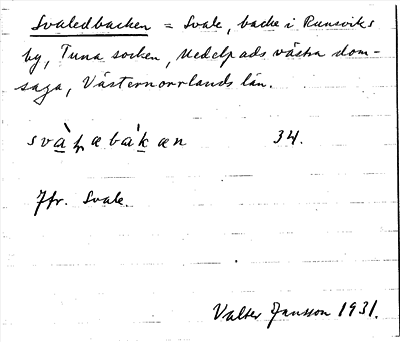 Svaledbacken = Svale, backe i Runsviks
by, Tuna socken, Medelpads västra dom-
saga, Västernorrlands län.
34.
Jfr. Svale.
Valter Jansson 1931.